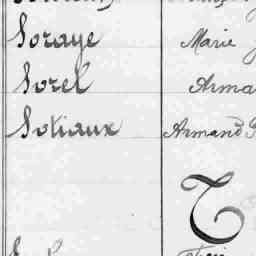 Soraye Marie
Sorel Arma
Sotiaux Armand
T